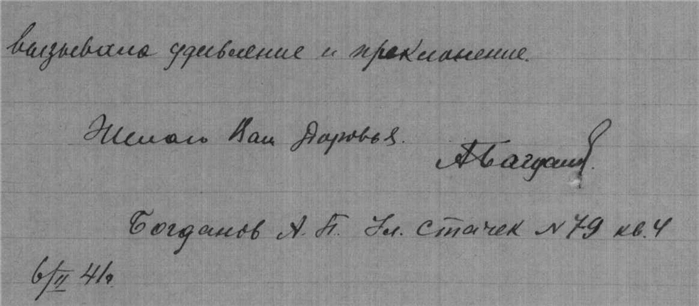 вызывало удивление и преклонение.
Желаю Вам Здоровья.
АБогданов
Богданов А. П. Ул. Стачек N 79 кв. 4
6/II 41г.